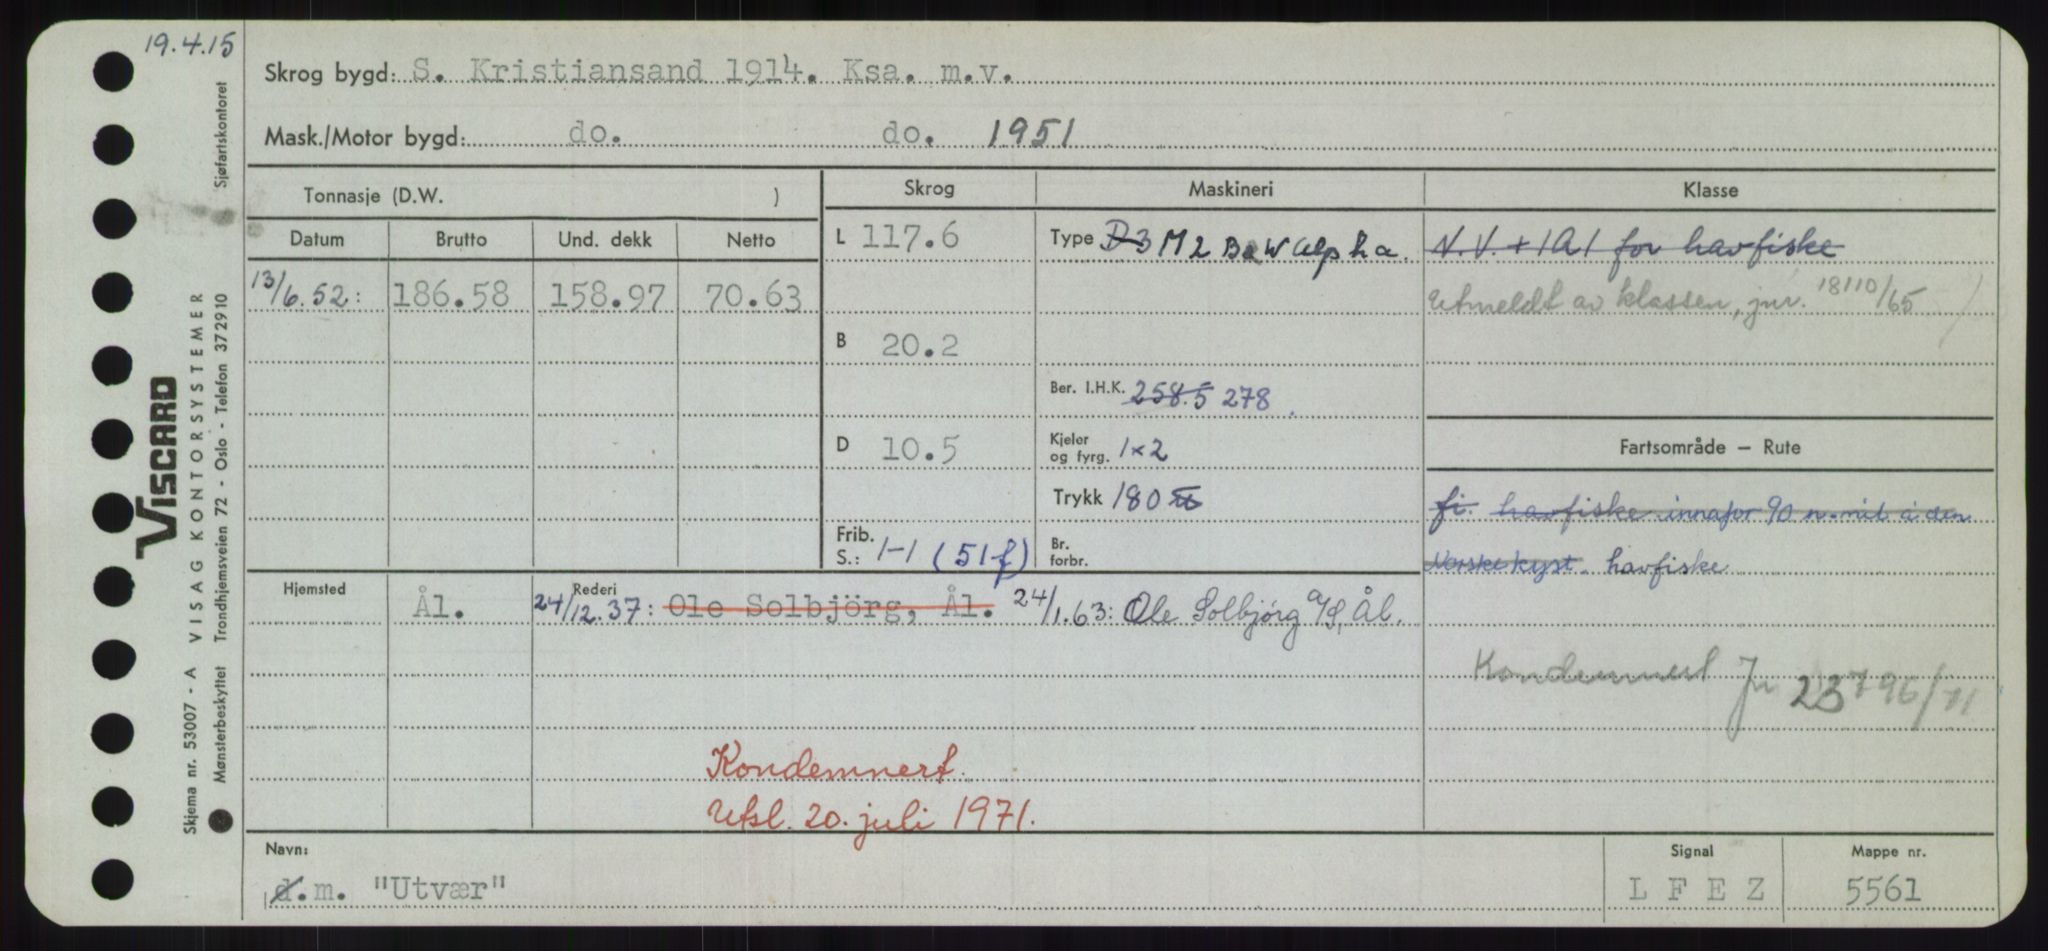 19.4.15
Skrog bygd: S. Kristiansand 1914. Ksa. m.v.
Mask./Motor bygd: do. do. 1951
Tonnasje (D.W. )
Datum Brutto Und. dekk Netto
13/6.52: 186.58 158.97 70.63
Skrog
L 117.6
B 20.2
D 10.5
Frib. S.: 1-1 (51f)
Maskineri
Type D3 M2 B&W alpha.
Ber. I.H.K. 258.5 278
Kjeler og fyrg. 1x2
Trykk 180
Br. forbr.
Klasse
N.V. + 1A1 for havfiske
Utmeldt av klassen, jnr. 18110/65
Fartsområde — Rute
fi. havfiske innafor 90 n.mil å den
Norske kyst. havfiske
Kondemnert Jn 23796/71
Hjemsted
Ål.
Rederi
24/12.37: Ole Solbjörg, Ål. 24/1.63: Ole Solbjórg a/S, Ål.
Kondemnert.
Utsl. 20. juli 1971.
Navn:
d.m. "Utvær"
Signal
L F E Z
Mappe nr.
5561
VISCARD
Skjema nr. 53007 - A VISAG KONTORSYSTEMER
Mønsterbeskyttet Trondhjemsveien 72 - Oslo - Telefon 372910 Sjøfartskontoret